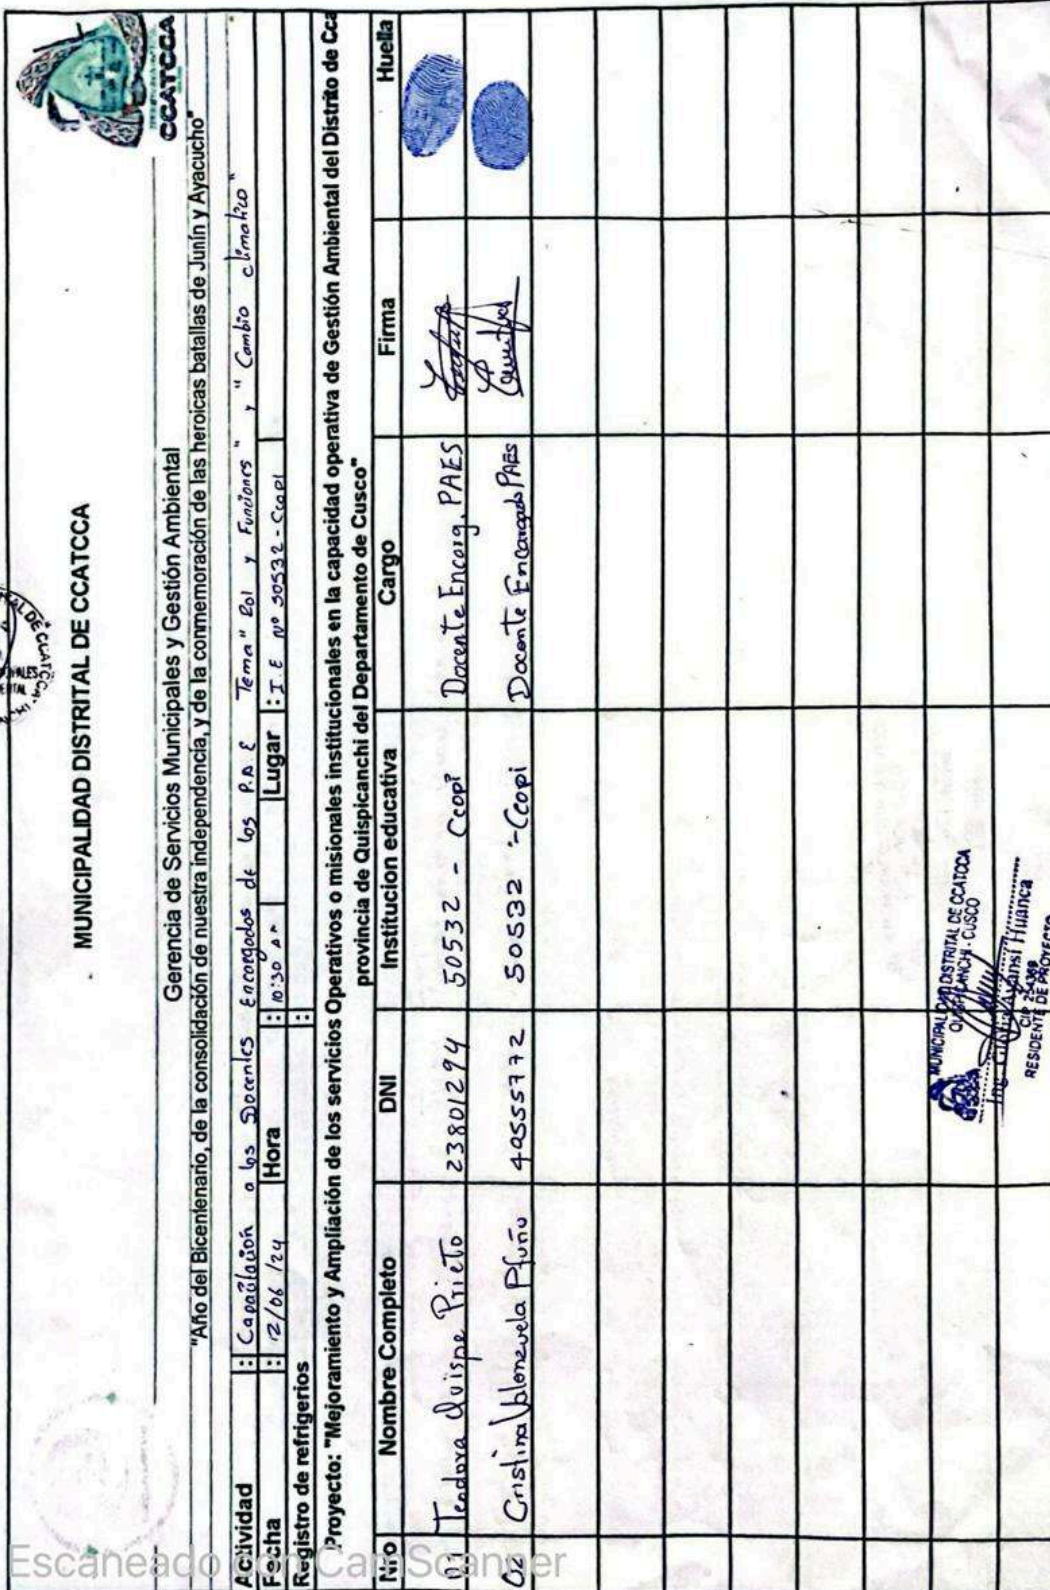 MUNICIPALIDAD DISTRITAL DE CCATCCA
CCATCCA
Gerencia de Servicios Municipales y Gestión Ambiental
"Año del Bicentenario, de la consolidación de nuestra independencia, y de la conmemoración de las heroicas batallas de Junín y Ayacucho"
Actividad : Capacitación a los Docentes Encargados de los P.A.E Tema "Rol y Funciones", "Cambio climatico"
Fecha : 12/06/24 Hora : 10:30 Am Lugar : I.E Nº 50532 - Ccopi
Registro de refrigerios :
Proyecto: "Mejoramiento y Ampliación de los servicios Operativos o misionales institucionales en la capacidad operativa de Gestión Ambiental del Distrito de Cca
provincia de Quispicanchi del Departamento de Cusco"
Nro Nombre Completo DNI Institucion educativa Cargo Firma Huella
01 Teodora Quispe Prieto 23801294 50532 - Ccopi Docente Encarg. PAES
02 Cristina Valenzuela Pfuño 40555772 50532 - Ccopi Docente Encargado PAES
MUNICIPALIDAD DISTRITAL DE CCATCCA
QUISPICANCHI - CUSCO
Huanca
RESIDENTE DE PROYECTO
Escaneado con CamScanner